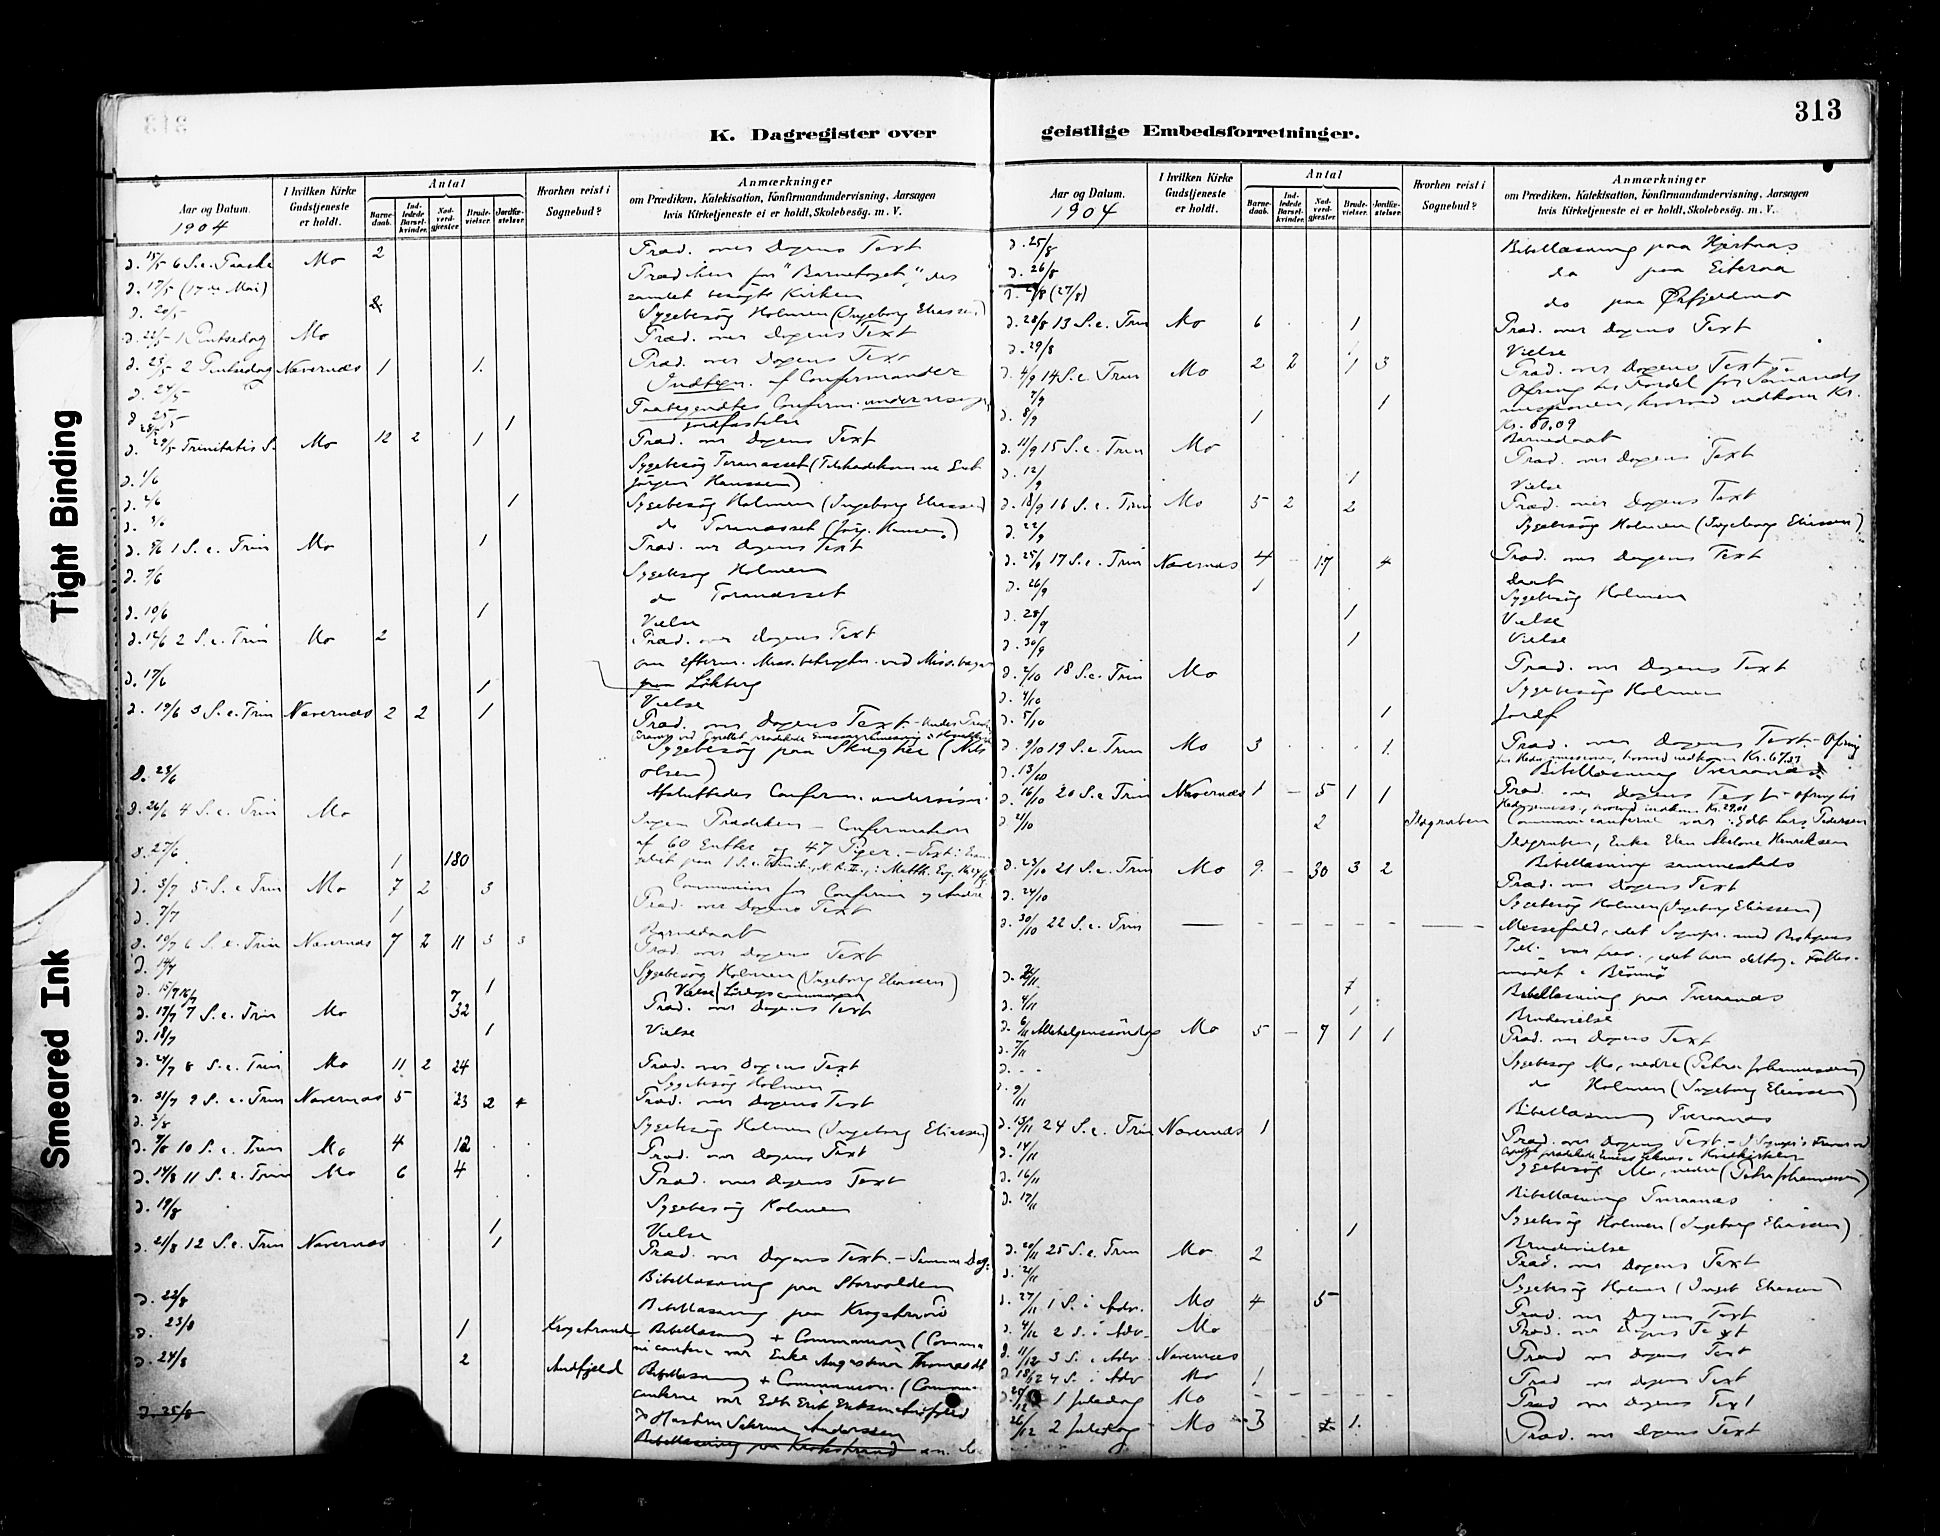 313
K. Dagregister over geistlige Embedsforretninger.
Tight Binding
Smeared Ink
Aar og Datum.
1904
I hvilken Kirke Gudstjeneste er holdt.
Antal
Barnedaab.
Indledede Barselkvinder.
Nadverdgjester
Brudevielser.
Jordfæstelser.
Hvorhen reist i Sognebud?
Anmærkninger
om Prædiken, Katekisation, Konfirmandundervisning, Aarsagen
hvis Kirketjeneste ei er holdt, Skolebesøg. m. V.
D. 15/5 6 S. e. Paaske Mo 2 Præd. over Dagens Text
D. 17/5 (17de Mai) Prædiken for "Barnetoget", der
samlet besøgte Kirken
D. 20/5 Sygebesøg Holmen (Ingeborg Eliassen)
D. 22/5 1 Pintsedag Mo Præd. over Dagens Text
D. 23/5 2 Pintsedag Nævernæs 1 1. Præd. over Dagens Text
D. 24/5 Indtegn. af Confirmander
D. 25/5 Paabegyndtes Confirm. undervisning
1 Jordfæstelse
D. 29/5 Trinitatis S. Mo 12 2 1 Præd. over Dagens Text
D. 1/6 Sygebesøg Toranæsset
Jørgen Hanssen)
D. 2/6 1 Sygebesøg Holmen (Ingeborg Eliassen)
D. 3/6 do Toranæsset (Jørg. Hansen)
D. 5/6 1 S. e. Trin Mo 1 Præd. over Dagens Text
D. 7/6 Sygebesøg Holmen
do Toranæsset
D. 10/6 1 Vielse
D. 12/6 2 S. e. Trin Mo 2 Præd. over Dagens Text
D. 17/6 1 Vielse
D. 19/6 3 S. e. Trin Nævernæs 2 2 1 Præd. over Dagens Text
Sygebesøg paa Skughei (Nils
Olsen)
D. 23/6 Afsluttedes Confirm. undervisn.
D. 26/6 4 S. e. Trin Mo Ingen Prædiken - Confirmation
af 60 Gutter og 47 Piger.
D. 27/6 1 180 Communion for Confirm. og Andre
D. 3/7 5 S. e. Trin Mo 7 2 3 Præd. over Dagens Text
D. 7/7 1 Barnedaab
D. 10/7 6 S. e. Trin Nævernæs 7 2 11 3 3 Præd. over Dagens Text
D. 14/7 Sygebesøg Holmen (Ingeborg Eliassen)
D. 15/7 16/7 7 1 Vielse
D. 17/7 7 S. e. Trin Mo 32 Præd. over Dagens Text
D. 18/7 1 Vielse
D. 24/7 8 S. e. Trin Mo 11 2 24 Præd. over Dagens Text
Sygebesøg Holmen
D. 31/7 9 S. e. Trin Nævernæs 5 23 2 4 Præd. over Dagens Text
D. 3/8 Sygebesøg Holmen (Ingeborg Eliassen)
D. 7/8 10 S. e. Trin Mo 4 12 Præd. over Dagens Text
D. 14/8 11 S. e. Trin Mo 6 4 Præd. over Dagens Text
D. 19/8 Sygebesøg Holmen
1 Vielse
D. 21/8 12 S. e. Trin Nævernæs 1 Præd. over Dagens Text. - Samme Dag:
Bibellæsning paa Storvolden
D. 22/8 Bibellæsning paa Krogstrand
D. 23/8 1 Krogstrand Bibellæsning + Communion (Commu-
nicanten var Enke
D. 24/8 2 Andfjeld Bibellæsning + Communion. (Communi-
canterne var Edb. Erik Eriksen Andfjeld
D. 25/8
Aar og Datum.
1904
I hvilken Kirke Gudstjeneste er holdt.
Antal
Barnedaab.
Indledede Barselkvinder.
Nadverdgjester
Brudevielser.
Jordfæstelser.
Hvorhen reist i Sognebud?
Anmærkninger
om Prædiken, Katekisation, Konfirmandundervisning, Aarsagen
hvis Kirketjeneste ei er holdt, Skolebesøg. m. V.
D. 25/8 Bibellæsning paa Hjertnæs
D. 26/8 do paa Eiteraa
D. (27/8) do paa Ørtfjeldmo
D. 28/8 13 S. e. Trin Mo 6 1 Præd. over Dagens Text
D. 29/8 Vielse
D. 4/9 14 S. e. Trin Mo 2 2 1 3 Præd. over Dagens Text
Ofring til Fordel for Sømands-
missionen, hvorved indkom Kr.
7/9 1
D. 8/9 1 Barnedaab
D. 11/9 15 S. e. Trin Mo Præd. over Dagens Text
D. 12/9 1 Vielse
D. 18/9 16 S. e. Trin Mo 5 2 2 Præd. over Dagens Text
D. 22/9 Sygebesøg Holmen (Ingeborg Eliassen)
D. 25/9 17 S. e. Trin Nævernæs 4 - 17 4 Præd. over Dagens Text
D. 26/9 1 Daab
Sygebesøg Holmen
D. 28/9 1 Vielse
D. 30/9 1 Vielse
D. 2/10 18 S. e. Trin Mo Præd. over Dagens Text
D. 4/10 Sygebesøg Holmen
D. 5/10 1 Jordf
D. 9/10 19 S. e. Trin Mo 3 1. Præd. over Dagens Text. - Ofring
D. 13/10 Bibellæsning Tveraanæs
D. 16/10 20 S. e. Trin Nævernæs 1 - 5 1 1 Præd. over Dagens Text - Ofring til
2 Ildgruben Communicanterne var: Edb. Lars Pedersen
Ildgruben, Enke Elen Abelone Henriksen
Bibellæsning sammesteds
D. 23/10 21 S. e. Trin Mo 9 - 30 3 2 Præd. over Dagens Text
D. 24/10 Sygebesøg Holmen (Ingeborg Eliassen)
D. 30/10 22 S. e. Trin Messefald, idet Sognepr. med Biskopens
Till. var frav., idet han deltog i Fælles-
mødet i Brønnø
Bibellæsning paa Tveraanæs
D. 4/11 1 Brudevielse
D. 6/11 Allehelgenssøndag Mo 5 - 7 1 1 Præd. over Dagens Text
D. 7/11 Sygebesøg Mo, nedre (Petra Johannessen)
D. - - do Holmen (Ingeborg Eliassen)
D. 9/11 Bibellæsning Tveraanæs
D. 13/11 24 S. e. Trin Nævernæs 1 Præd. over Dagens Text
D. 14/11 Sygebesøg Mo, nedre (Petra Johannessen)
D. 16/11 Bibellæsning Tveraanæs
D. 17/11 Sygebesøg Holmen (Ingeborg Eliassen)
1 Brudevielse
D. 20/11 25 S. e. Trin Mo 2 Præd. over Dagens Text
D. 21/11 Sygebesøg Holmen (Ingeb. Eliassen)
D. 27/11 1 S. i Adv. Mo 4 5 Præd. over Dagens Text
D. 4/12 2 S. i Adv. Mo Præd. over Dagens Text
D. 11/12 3 S. i Adv. Nævernæs Præd over Dagens Text
D. 18/12 4 S. i Adv Mo 1 Præd over Dagens Text
1 Juledag Mo Præd over Dagens Text
26/12 2 Juledag Mo 3 1. Præd. over Dagens Text